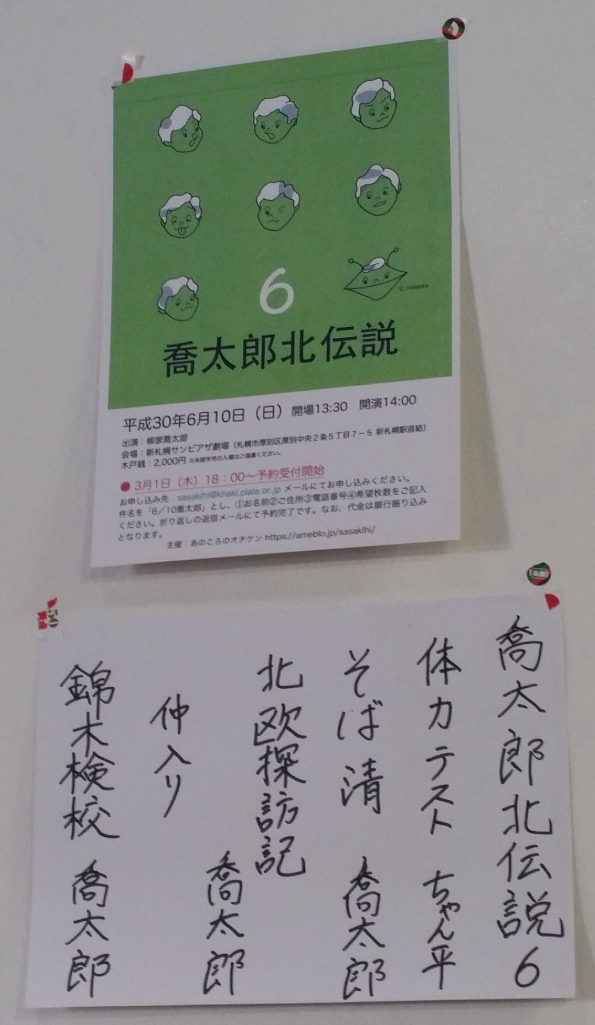 6
喬太郎北伝説
平成30年6月10日（日）開場13:30　開演14:00
出演：柳家喬太郎
会場：新札幌サンピアザ劇場（札幌市厚別区厚別中央２条５丁目７−５ 新札幌駅直結）
木戸銭：2,000円 ※未就学児の入場はご遠慮ください。
●3月1日（木）18：00〜予約受付開始
お申し込み先：sasakihi@khaki.plala.or.jp メールにてお申し込みください。
件名を「6／10喬太郎」とし、①お名前②ご住所③電話番号④希望枚数をご記入
ください。折り返しの返信メールにて予約完了です。なお、代金は銀行振り込み
となります。
主催：あのころのオチケン https://ameblo.jp/sasakihi/
喬太郎北伝説6
体力テスト　ちゃん平
そば清　喬太郎
北欧探訪記
喬太郎
仲入り
錦木検校　喬太郎